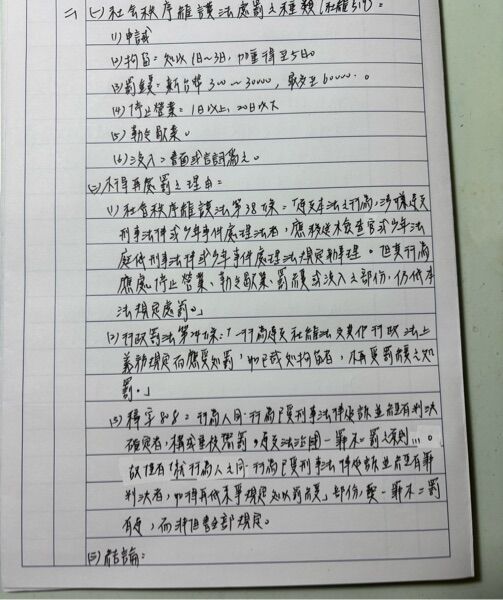 二 (一) 社會秩序維護法處罰之種類(社維§19):
(1) 申誡
(2) 拘留:處以1日~3日,加重得至5日。
(3) 罰鍰:新台幣300~30000,最多至60000。
(4) 停止營業:1日以上,20日以下
(5) 勒令歇業。
(6) 沒入:書面或言詞為之。
(二) 不得再處罰之理由:
(1) 社會秩序維護法第38條:「違反本法之行為,涉嫌違反
刑事法律或少年事件處理法者,應移送檢查官或少年法
庭依刑事法律或少年事件處理法規定辦理。但其行為
應處停止營業、勒令歇業、罰鍰或沒入之部份,仍依本
法規定處罰。」
(2) 行政罰法第24條:「一行為違反社維法及其他行政法上
義務規定而應受處罰,如已裁處拘留者,不再受罰鍰之處
罰。」
(3) 釋字808:行為人同一行為已受刑事法律追訴並經有罪判決
確定者,構成重複處罰,違反法治國一罪不二罰之原則…。
故但有「就行為人之同一行為已受刑事法律追訴並經有罪
判決者,如得再依本單規定處以罰鍰」部份,與一罪不二罰
有違,而非但書全部規定。
(三) 結論: